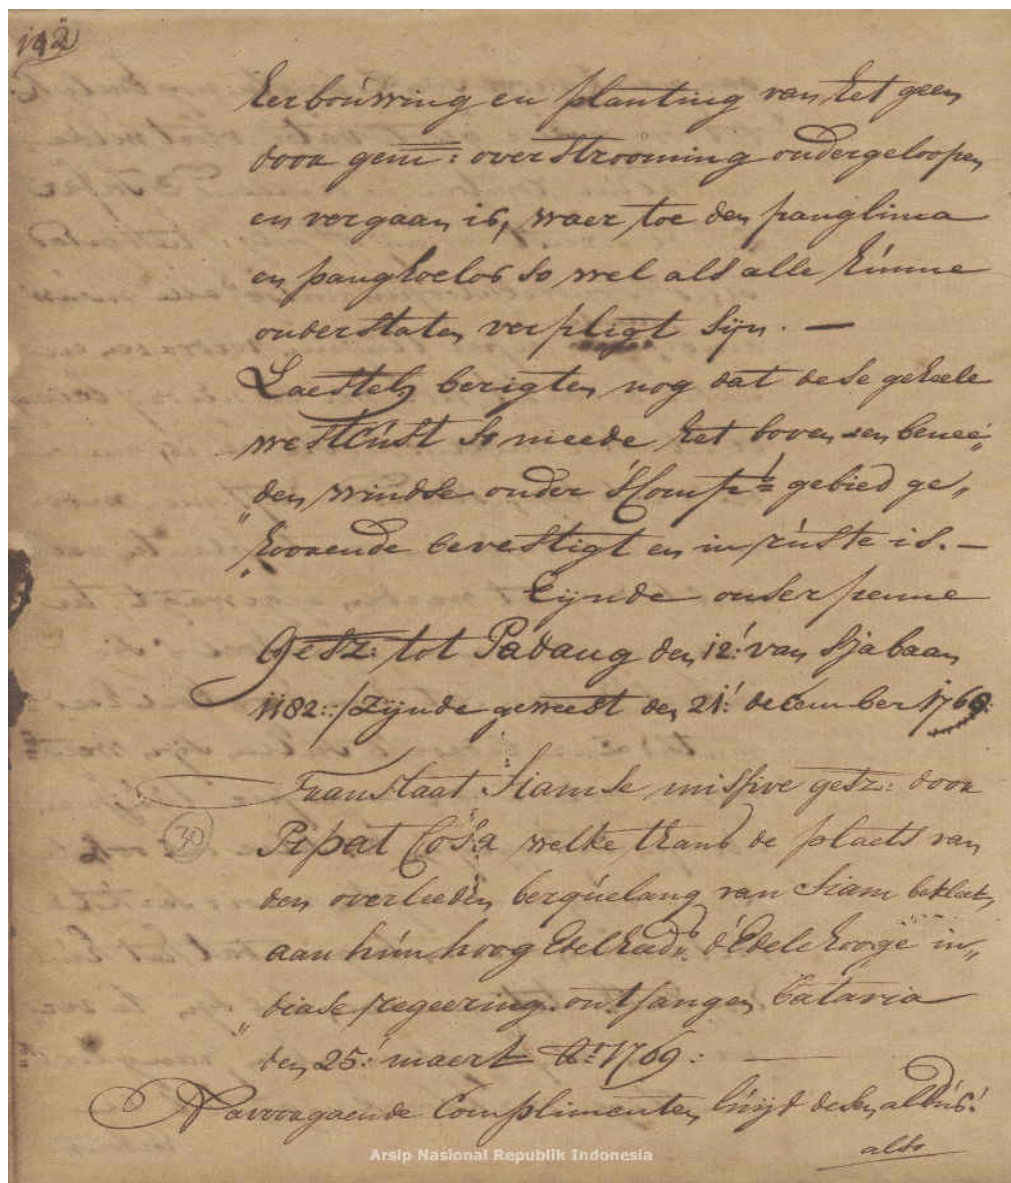 142
herbouwing en planting van het geen
door gem: overstrooming ondergeloopen
en vergaan is, waer toe den panglima
en panghoelos so wel als alle hunne
onderstaten verpligt sijn. —
Laestelk berigten nog dat dese geheele
westcust so meede het boven en benee„
„den windse onder 'sComps gebied ge„
„hoorende bevestigt en in ruste is. —
Eijnde onser penne
Gesz: tot Padang den 12: van Sjabaan
1182: / Zijnde geweest den 21: december 1768:
Translaat Siamse missive gesz: door
30
Pipat Cosa welke thans de plaets van
den overleeden berquelang van Siam bekleet,
aan hun hoog Edelheeds. d'Edele hooge in„
„diase regeering ontfangen Batavia
den 25: maert Ao. 1769: —
Navoorgaende Complimenten, luijd desen aldus:
als
Arsip Nasional Republik Indonesia